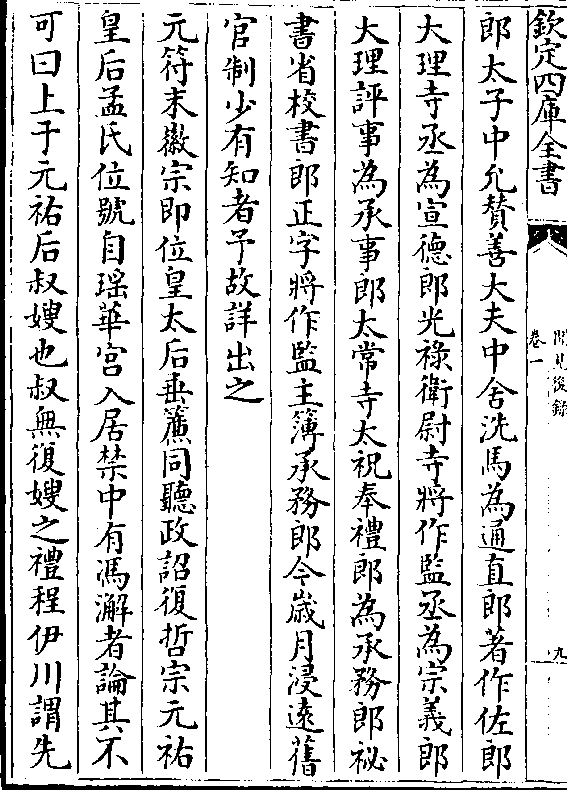 欽定四庫全書
聞見後錄
卷一
九
郎太子中允贊善大夫中舍洗馬為通直郎著作佐郎
大理寺丞為宣德郎光祿衛尉寺將作監丞為宗義郎
大理評事為承事郎太常寺太祝奉禮郎為承務郎祕
書省校書郎正字將作監主簿承務郎今歲月浸遠舊
官制少有知者予故詳出之
元符末徽宗即位皇太后垂簾同聽政詔復哲宗元祐
皇后孟氏位號自瑶華宮入居禁中有馮澥者論其不
可曰上于元祐后叔嫂也叔無復嫂之禮程伊川謂先